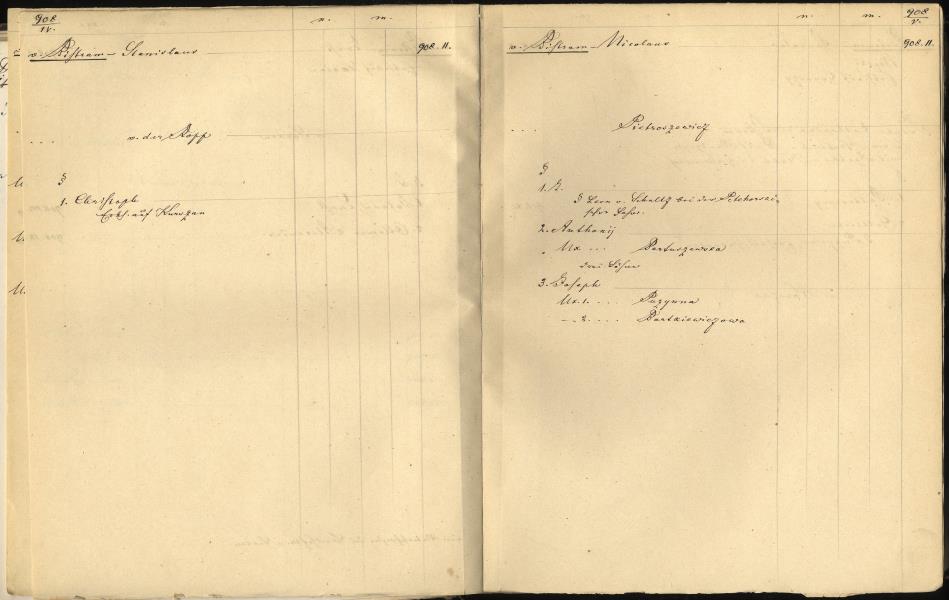 908
IV.
n.
m.
v. Bistram - Stanislaus
908. II.
.... v. der Ropp
§
1. Christoph
Erbh. auf Kurszan
n.
m.
908
V.
v. Bistram - Nicolaus
908. II.
.... Pietroszewicz
§
1. B.
§ Leon v. Schultz bei der
2. Anthonij
Ux ... Bartuszewska
drei Söhne
3. Joseph
Ux. 1. ... Puzynna
— 2. ... Bartkiewiczowa